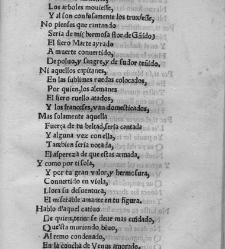 Los arboles mouiesse,
Y al son confusamente los truxesse,
No pienses que cantando
Seria de mi hermosa flor de Gnido,
El fiero Marte ayrado
A muerte conuertido,
De poluo, y sangre, y de sudor teñido,
Ni aquellos capitanes,
En las sublimes ruedas colocados,
Por quien los alemanes
El fiero cuello atados,
Y los franceses van domesticados,
Mas solamente aquella
Fuerça de tu beldad, seria cantada
Y alguna vez con ella,
Tambien seria notada,
El aspereza de que estas armada,
Y como por ti sola,
Y por tu gran valor, y hermosura,
Conuertido en viola,
Llora su desuentura,
El miserable amante en tu figura,
Hablo d'aquel catiuo
De quien tener se deue mas cuidado,
Que'sta muriendo biuo,
Al remo condenado,
En la concha de Venus amarrado,